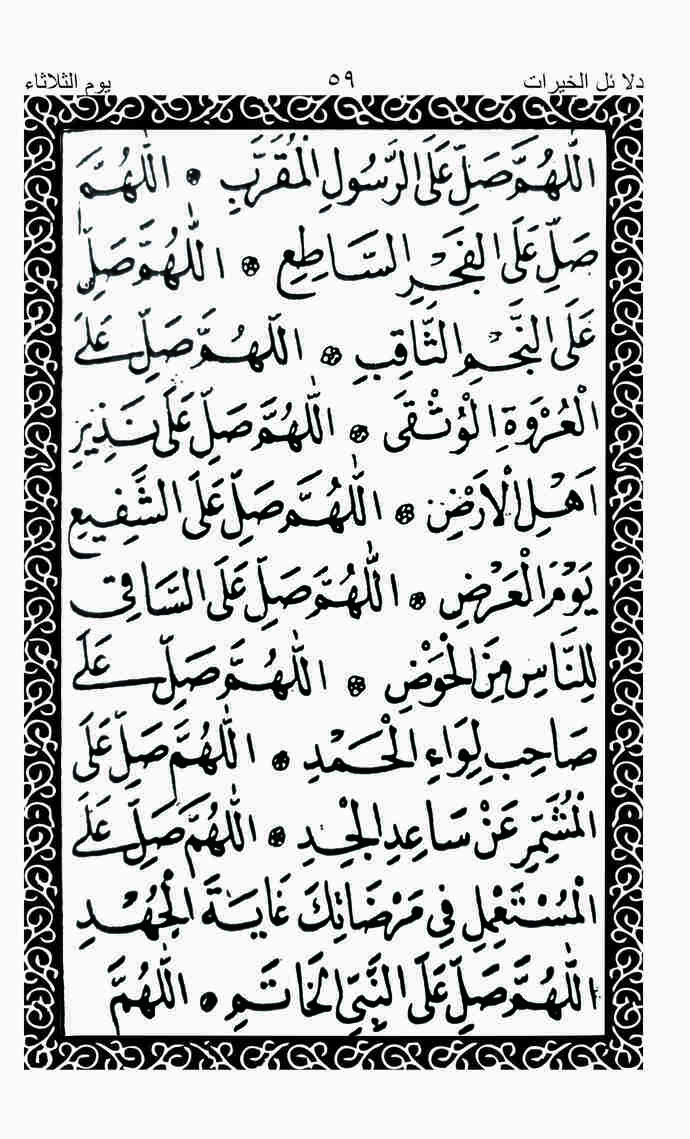 دلا ئل الخيرات ٥٩ يوم الثلاثاء
اَللّٰهُمَّ صَلِّ عَلَى الرَّسُولِ الْمُقَرَّبِ ۞ اَللّٰهُمَّ
صَلِّ عَلَى الْفَجْرِ السَّاطِعِ ۞ اَللّٰهُمَّ صَلِّ
عَلَى النَّجْمِ الثَّاقِبِ ۞ اَللّٰهُمَّ صَلِّ عَلَى
الْعُرْوَةِ الْوُثْقَى ۞ اَللّٰهُمَّ صَلِّ عَلَى نَذِيرِ
اَهْلِ الْاَرْضِ ۞ اَللّٰهُمَّ صَلِّ عَلَى الشَّفِيعِ
يَوْمَ الْعَرْضِ ۞ اَللّٰهُمَّ صَلِّ عَلَى السَّاقِى
لِلنَّاسِ مِنَ الْحَوْضِ ۞ اَللّٰهُمَّ صَلِّ عَلَى
صَاحِبِ لِوَاءِ الْحَمْدِ ۞ اَللّٰهُمَّ صَلِّ عَلَى
الْمُشَمِّرِ عَنْ سَاعِدِ الْجِدِ ۞ اَللّٰهُمَّ صَلِّ عَلَى
الْمُسْتَعْمِلِ فِى مَرْضَاتِكَ غَايَةَ الْجُهْدِ
اَللّٰهُمَّ صَلِّ عَلَى النَّبِىِّ الْخَاتَمِ ۞ اَللّٰهُمَّ